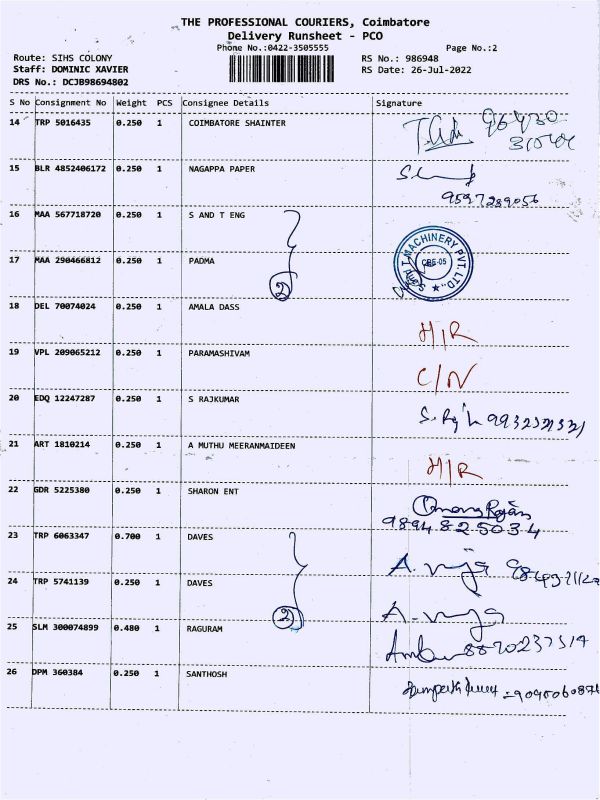 THE PROFESSIONAL COURIERS, Coimbatore
Delivery Runsheet - PCO
Phone No.:0422-3505555 Page No.:2
Route: SIHS COLONY RS No.: 986948
Staff: DOMINIC XAVIER RS Date: 26-Jul-2022
DRS No.: DCJB98694802
S No Consignment No Weight PCS Consignee Details Signature
14 TRP 5016435 0.250 1 COIMBATORE SHAINTER
15 BLR 4852406172 0.250 1 NAGAPPA PAPER
9597289056
16 MAA 567718720 0.250 1 S AND T ENG
17 MAA 290466812 0.250 1 PADMA
2
MACHINERY PVT. LTD.
CBE-05
18 DEL 70074024 0.250 1 AMALA DASS
H/R
19 VPL 209065212 0.250 1 PARAMASHIVAM
C/N
20 EDQ 12247287 0.250 1 S RAJKUMAR
21 ART 1810214 0.250 1 A MUTHU MEERANMAIDEEN
H/R
22 GDR 5225380 0.250 1 SHARON ENT
9894825034
23 TRP 6063347 0.700 1 DAVES
24 TRP 5741139 0.250 1 DAVES
2
25 SLM 300074899 0.480 1 RAGURAM
26 DPM 360384 0.250 1 SANTHOSH